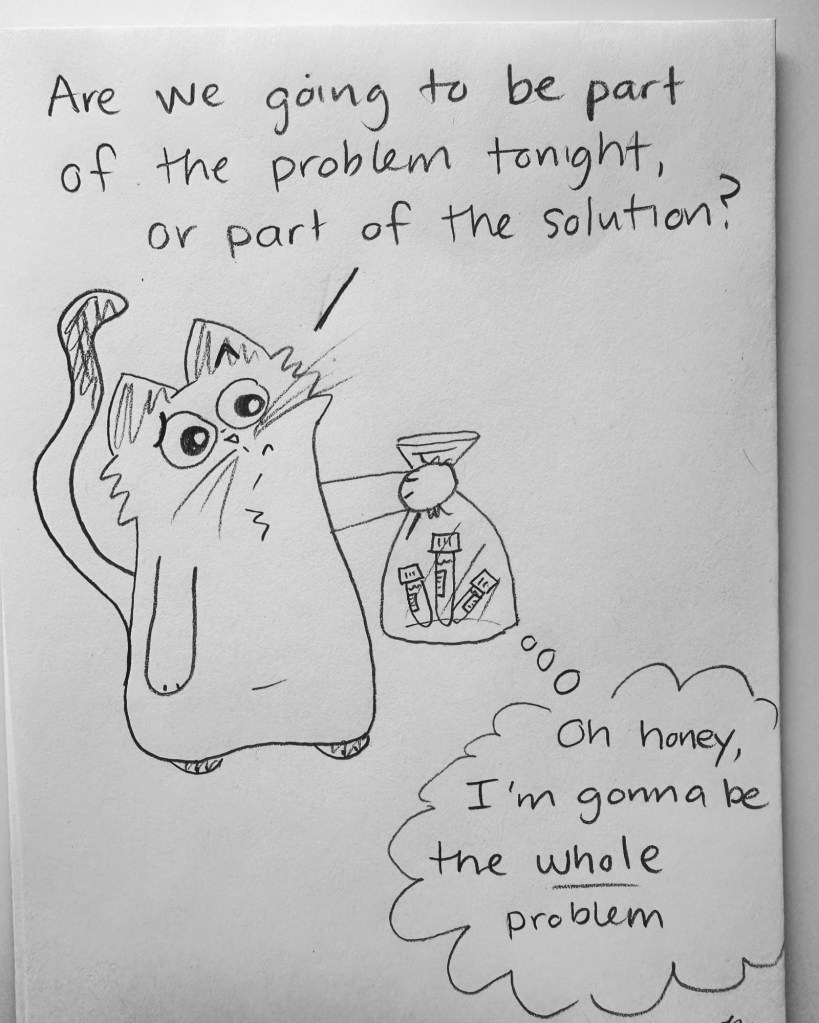 Are we going to be part
of the problem tonight,
or part of the solution?
Oh honey,
I'm gonna be
the whole
problem